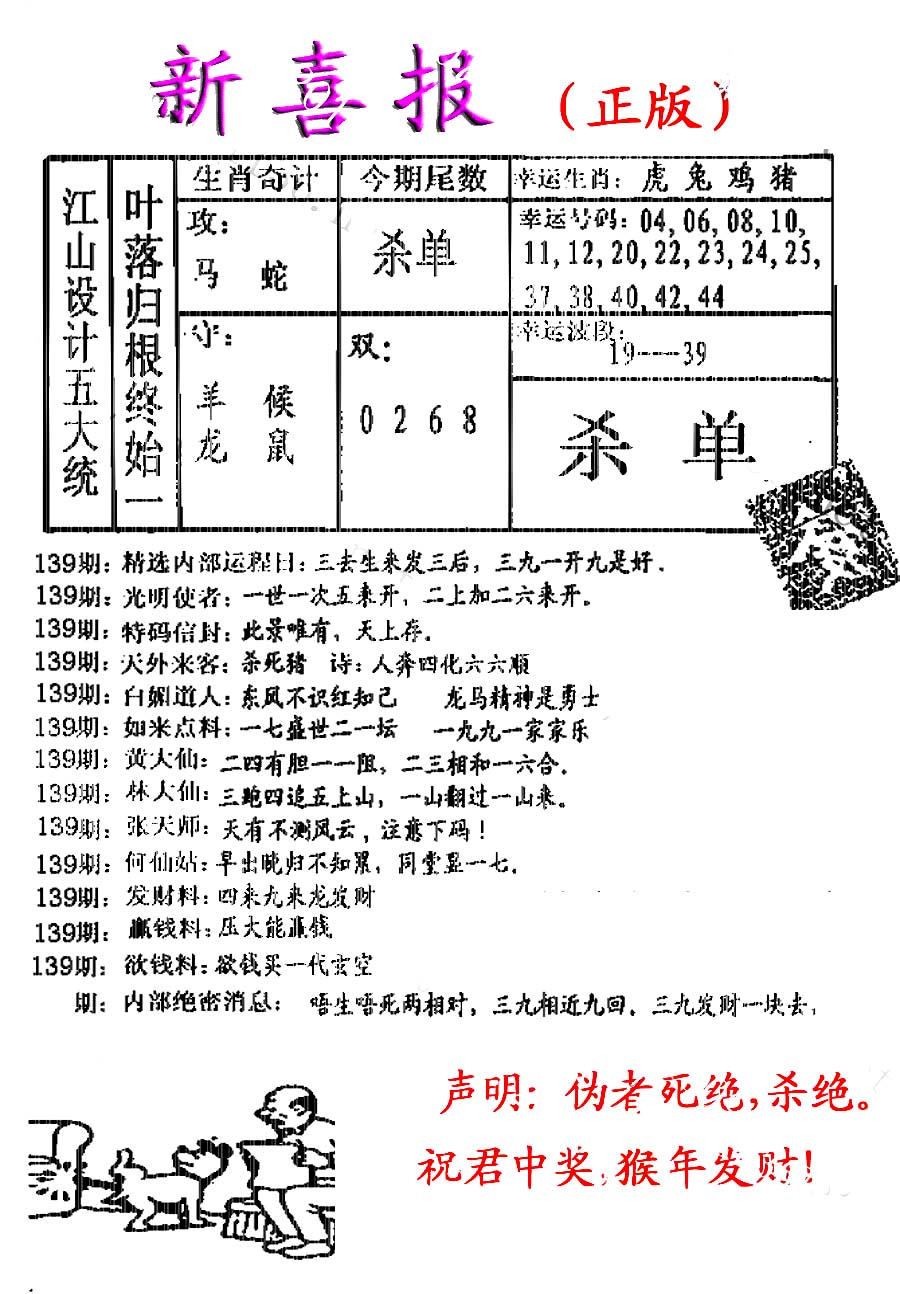 新喜报（正版）
江山设计五大统
叶落归根终始一
生肖奇计
攻：
马 蛇
守：
羊 候
龙 鼠
今期尾数
杀单
双：
0 2 6 8
幸运生肖：虎 兔 鸡 猪
幸运号码：04,06,08,10,
11,12,20,22,23,24,25,
37,38,40,42,44
幸运波段：
19----39
杀 单
139期：精选内部运程日：三去生来发三后，三九一开九是好.
139期：光明使者：一世一次五来开，二上加二六来开。
139期：特码信封：此景唯有，天上存。
139期：天外来客：杀死猪 诗：人奔四化六六顺
139期：白媚道人：东风不识红知己 龙马精神是勇士
139期：如来点料：一七盛世二一坛 一九九一家家乐
139期：黄大仙：二四有胆一一阻，二三相和一六合.
139期：林大仙：三跑四追五上山，一山翻过一山来。
139期：张天师：天有不测风云，注意下码！
139期：何仙姑：早出晓归不知累，同堂显一七。
139期：发财料：四来九来龙发财
139期：赢钱料：压大能赢钱
139期：欲钱料：欲钱买一代玄空
期：内部绝密消息：唔生唔死两相对，三九相近九回，三九发财一块去，
声明：伪者死绝,杀绝。
祝君中奖,猴年发财!